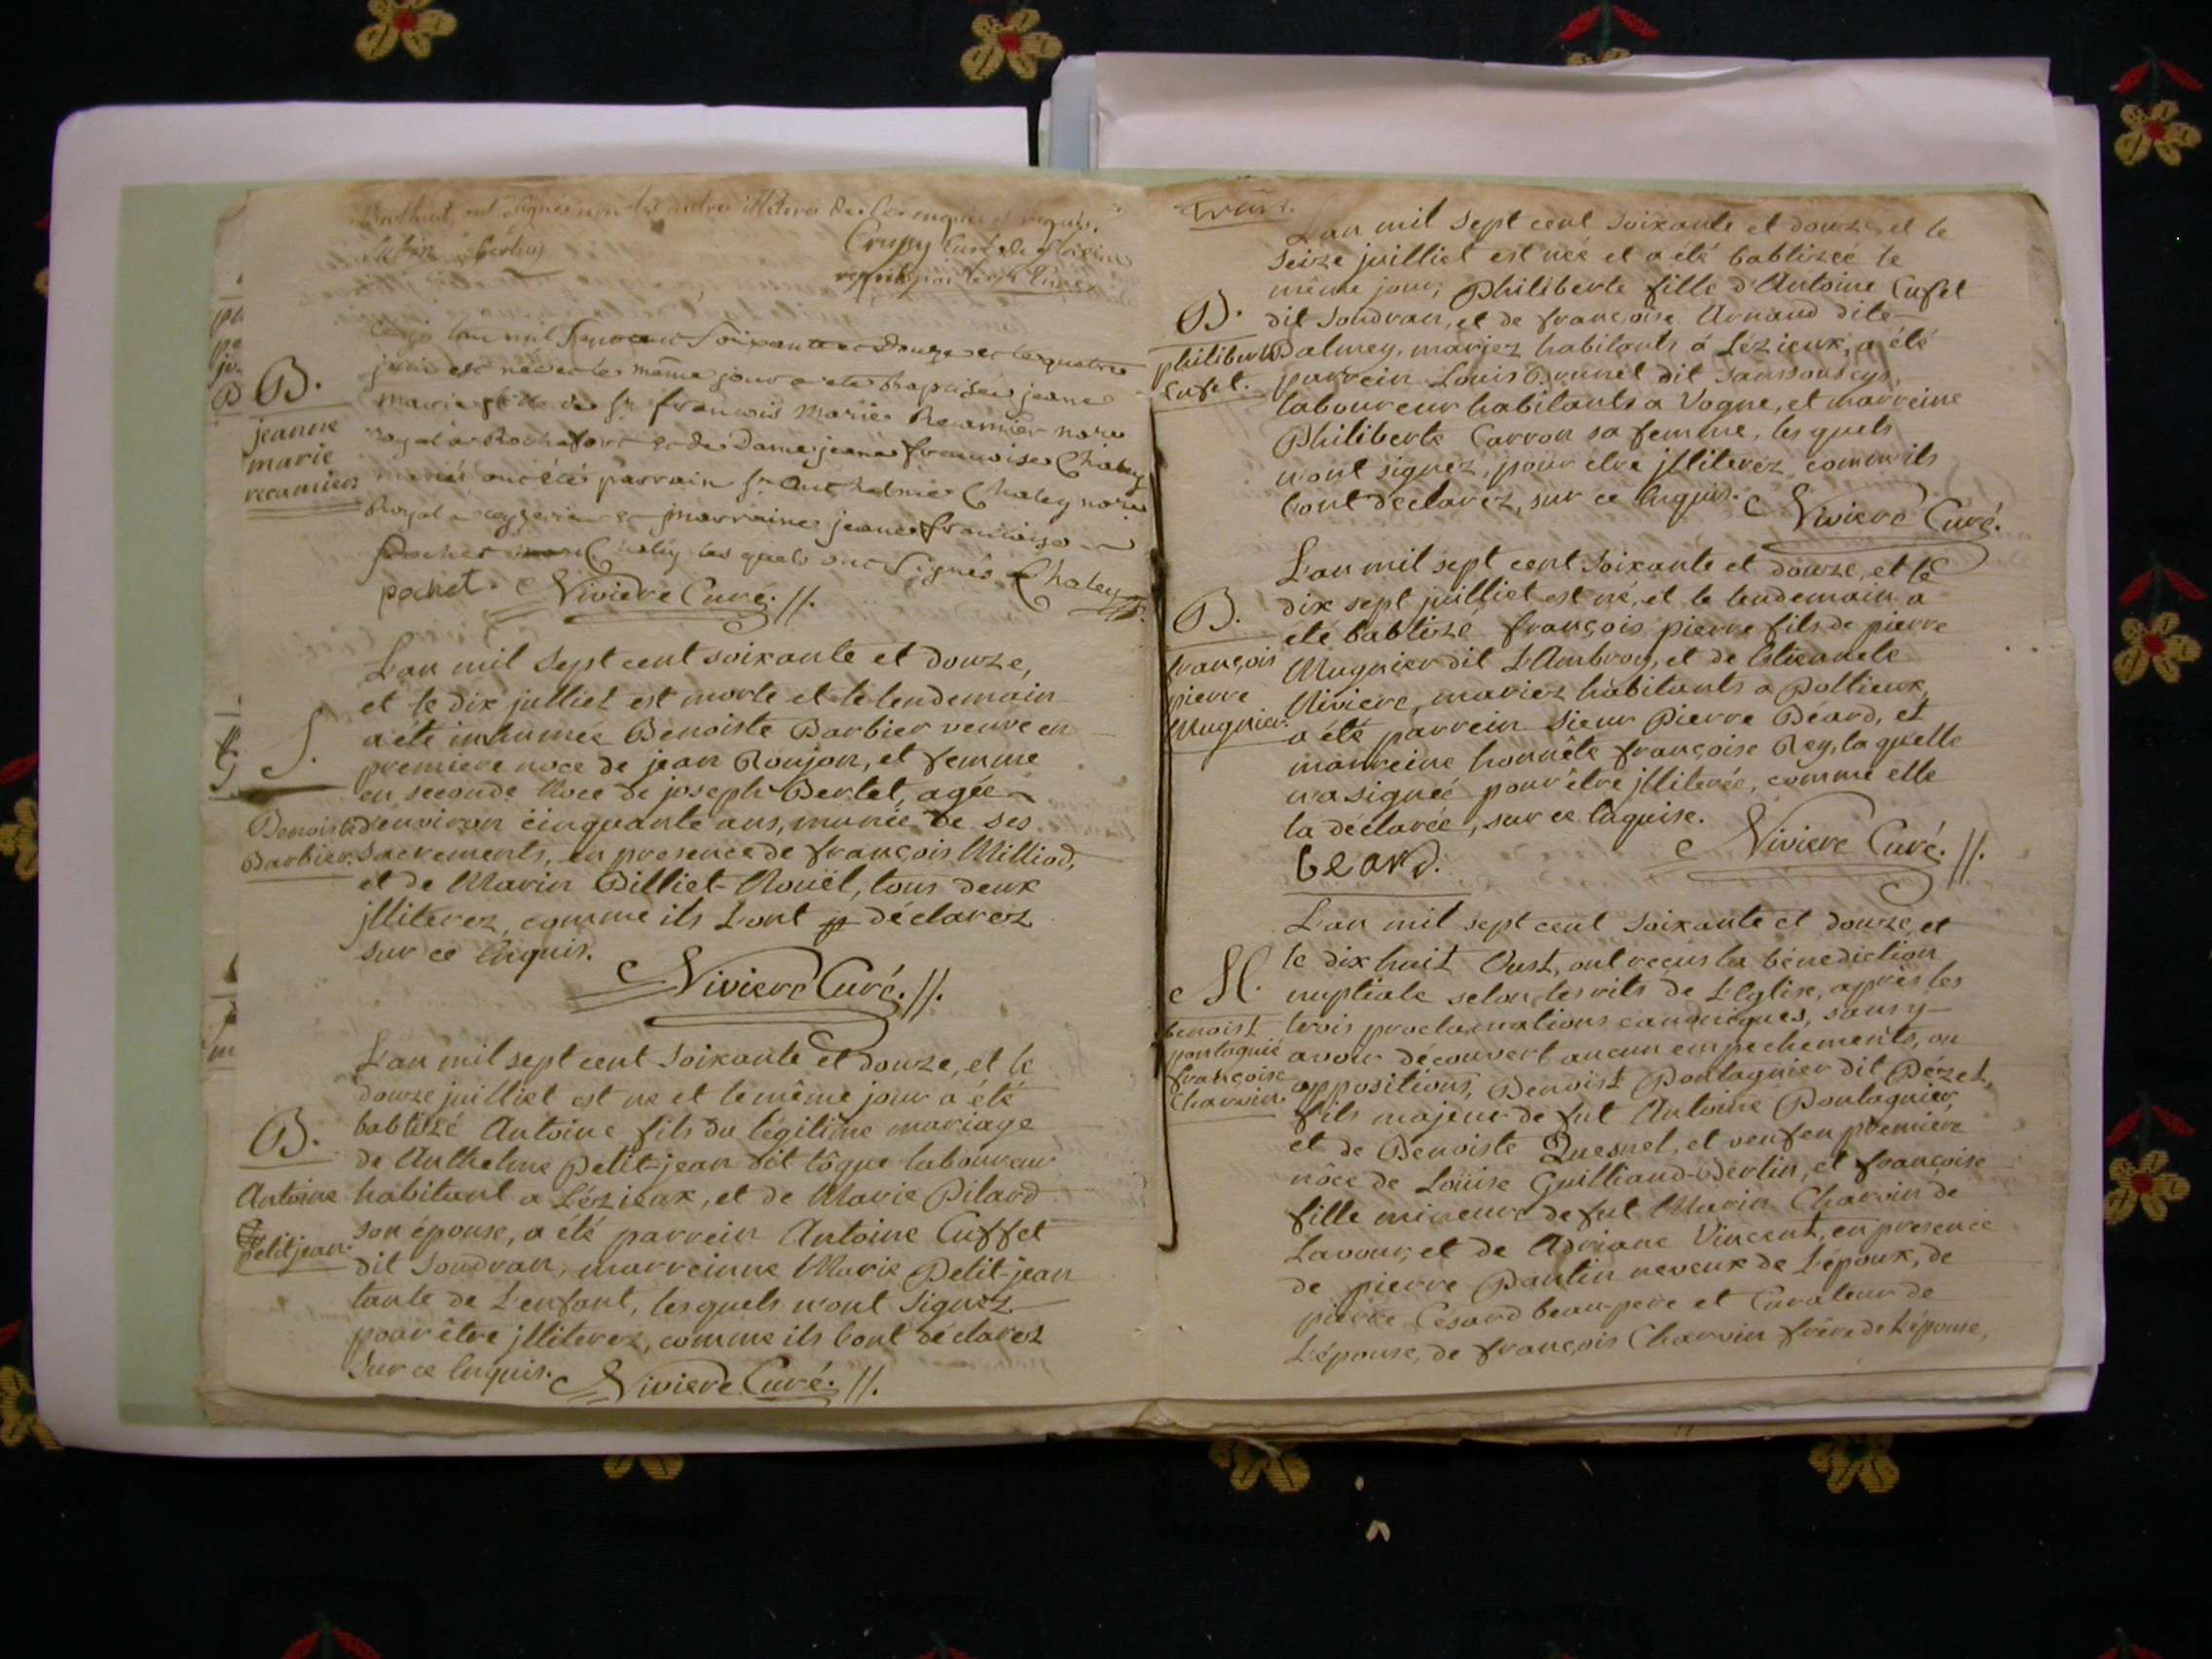 ont signés non les autres illiteres de ce enquis et requis.
Crussy Curé de
L'an mil sept cent soixante et douze et le quatre
juin est née et le même jour a été baptisée jeanne
marie fille de sr francois Marie Recamier nore
royal à Rochefort et de Dame jeane francoise Chaley
mariés ont été parrain sr Anthelme Chaley nore
Royal a et marraine jeane francoise
pochet Chaley les quels ont signés Chaley
pochet. Niviere Curé. //.
B.
jeanne
marie
recamier
L'an mil sept cent soixante et douze,
et le dix julliet est morte et le lendemain
a été inhumée Benoiste Barbier veuve en
premiere noce de jean Roujon, et femme
en seconde Noce de joseph Bertet, agée
d'environ cinquante ans, munie de ses
sacrements, en presence de françois Milliod,
et de Marin Billiet-Nouël, tous deux
jlliterez, comme ils L'ont déclarez
sur ce Enquis.
Niviere Curé. //.
S.
Benoiste
Barbier.
L'an mil sept cent soixante et douze, et le
douze juilliet est né et le même jour a été
babtizé Antoine fils du légitime mariage
de Anthelme Petit-jean dit tôque laboureur
habitant a Lézieux, et de Marie Pilard
son épouse, a été parrein Antoine Cuffet
dit Soudran, marreinne Marie Petit-jean
tante de L'enfant, lesquels n'ont signez
pour être jlliterez, comme ils l'ont déclarez
sur ce Enquis. Niviere Curé. //.
B.
Antoine
petitjean.
L'an mil sept cent soixante et douze, et le
seize juilliet est née et a été babtizée le
même jour, Philiberte fille d'Antoine Cufet
dit Soudran, et de françoise Arnaud dite
Balmey, mariez habitants à Lézieux, a été
parrein Louis Brunet dit Sanssoucys,
laboureur habitants a Vogne, et marreine
Philiberte Carron sa femme, les quels
n'ont signez, pour être jlliterez comm'ils
l'ont déclarez, sur ce Enquis. Niviere Curé.
B.
philiberte
Cufet.
L'an mil sept cent soixante et douze, et le
dix sept juilliet est né, et le lendemain a
été babtizé françois pierre fils de pierre
Mugnier dit L'Ambroy, et de Etiennete
Niviere, mariez habitants a Pollieux,
a été parrein sieur Pierre Béard, et
marreine honnête françoise Rey, la quelle
n'a signée pour être jlliterée, comme elle
la déclarée, sur ce Enquise.
beard. Niviere Curé. //.
B.
françois
pierre
Mugnier.
L'an mil sept cent soixante et douze, et
le dix huit Oust, ont reçus la bénédiction
nuptiale selon les rits de L'Eglise, après les
trois proclamations canoniques, sans y
avoir découvert aucun empechements, ou
oppositions, Benoist Pontagnier dit Pérzet,
fils majeur de fut Antoine Pontagnier,
et de Benoiste Quesnel, et veuf en premiere
nôce de Loüise Guilliand-Bertin, et françoise
fille mineure de fut Marin Charvin de
Lavour, et de Adriane Vincent, en presence
de pierre Pantin neveux de L'époux, de
pierre Césard beau-pere et Curateur de
L'épouse, de françois Charvin frère de L'épouse,
M.
benoist
pontagnié
françoise
Charvin.